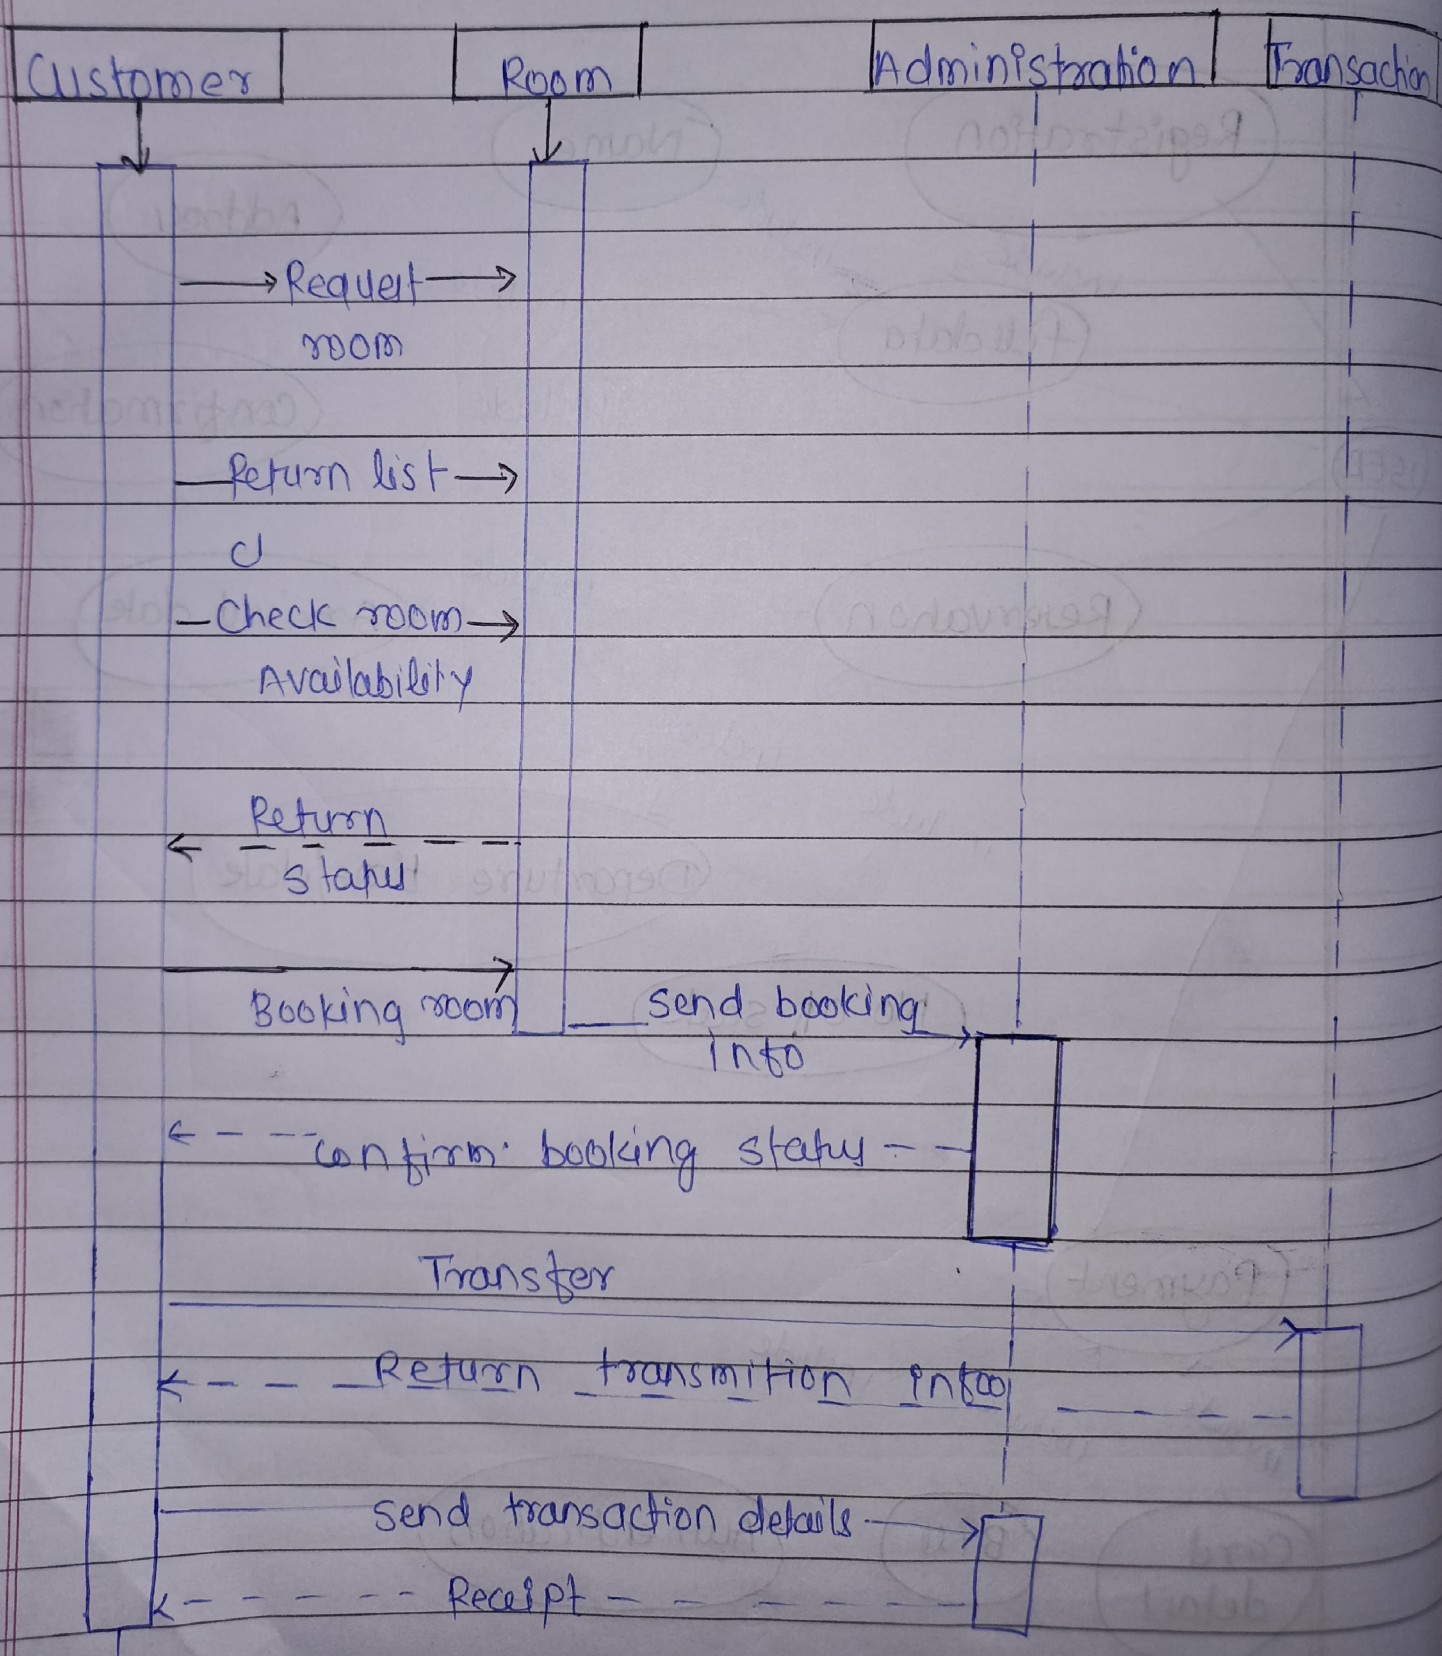 Customer Room Administration Transaction
Request
room
Return list
Check room
Availability
Return
status
Booking room
send booking
info
Confirm booking status
Transfer
Return transmition info
send transaction details
Receipt